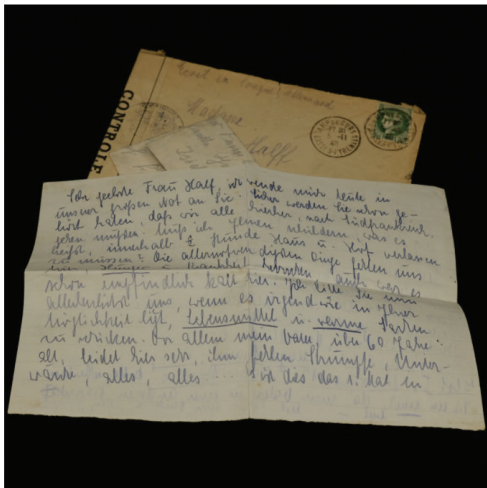 Ecrit en langue allemand
Madame
Halff
CONTROLE
Sehr geehrte Frau Halff, ich wende mich heute in
unserer großen Not an Sie. Sicher werden Sie schon ge-
hört haben, daß wir alle hierher, nach Südfrankreich
gehen mußten. Muß ich Ihnen schildern, was es
heißt, innerhalb 2 Stunde Haus u. Hof verlassen
zu müssen? Die allernotwendigsten Dinge fehlen uns
hier. Hunger u. Krankheit herrschen, auch war es
schon empfindlich kalt hier. Ich bitte Sie nun
allerherzlichst uns, wenn es irgendwie in Ihrer
Möglichkeit liegt, Lebensmittel u. warme Sachen
zu schicken. Vor allem mein Vater, über 60 Jahre
alt, leidet hier sehr, ihm fehlen Strümpfe, Unter-
wäsche, alles, alles ..... ist das das 1. Mal in